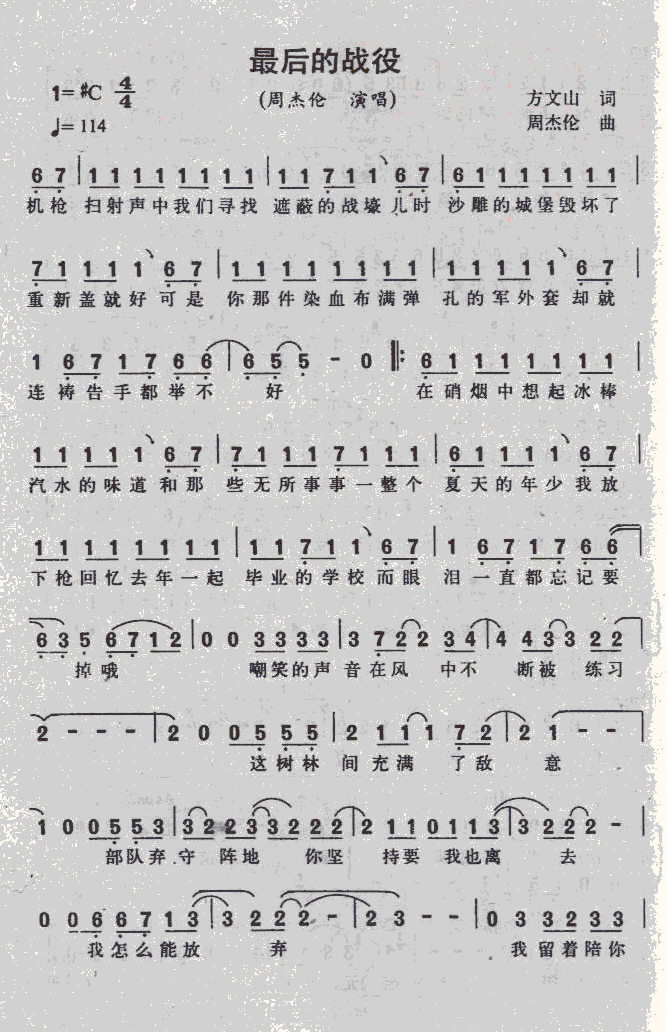 最后的战役
1=#C 4/4
(周杰伦 演唱)
方文山 词
♩=114
周杰伦 曲
6 7 | 1 1 1 1 1 1 1 1 | 1 1 7 1 1 6 7 | 6 1 1 1 1 1 1 1 |
机枪 扫射声中我们寻找 遮蔽的战壕儿时 沙雕的城堡毁坏了
7 1 1 1 1 6 7 | 1 1 1 1 1 1 1 1 | 1 1 1 1 1 6 7 |
重新盖就好可是 你那件染血布满弹 孔的军外套却就
1 6 7 1 7 6 6 | 6 5 5 - 0 ‖: 6 1 1 1 1 1 1 1 |
连祷告手都举不 好 在硝烟中想起冰棒
1 1 1 1 1 6 7 | 7 1 1 1 7 1 1 1 | 6 1 1 1 1 6 7 |
汽水的味道和那 些无所事事一整个 夏天的年少我放
1 1 1 1 1 1 1 1 | 1 1 7 1 1 6 7 | 1 6 7 1 7 6 6 |
下枪回忆去年一起 毕业的学校而眼 泪一直都忘记要
6 3 5 6 7 1 2 | 0 0 3 3 3 3 | 3 7 2 2 3 4 | 4 4 3 3 2 2 |
掉哦 嘲笑的声 音在风 中不 断被 练习
2 - - - | 2 0 0 5 5 5 5 | 2 1 1 1 7 2 | 2 1 - - |
这树林 间充满 了敌 意
1 0 0 5 5 3 | 3 2 2 2 3 3 2 2 2 | 2 1 1 0 1 1 3 | 3 2 2 2 - |
部队弃守 阵地 你坚 持要 我也离 去
0 0 6 6 7 1 3 | 3 2 2 2 - | 2 3 - - | 0 3 3 2 3 3
我怎么能放 弃 我留着陪你